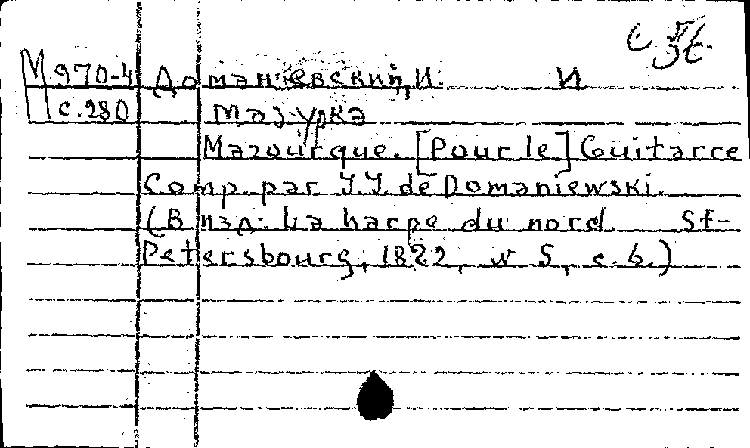 М 970-4 Доманиевский, И. И
с. 280 Мазурка
Mazourque. [Pour le] Guitarre
Comp. par J.J. de Domaniewski.
(В изд: La harpe du nord St-
Petersbourg, 1822, № 5, с. 6.)